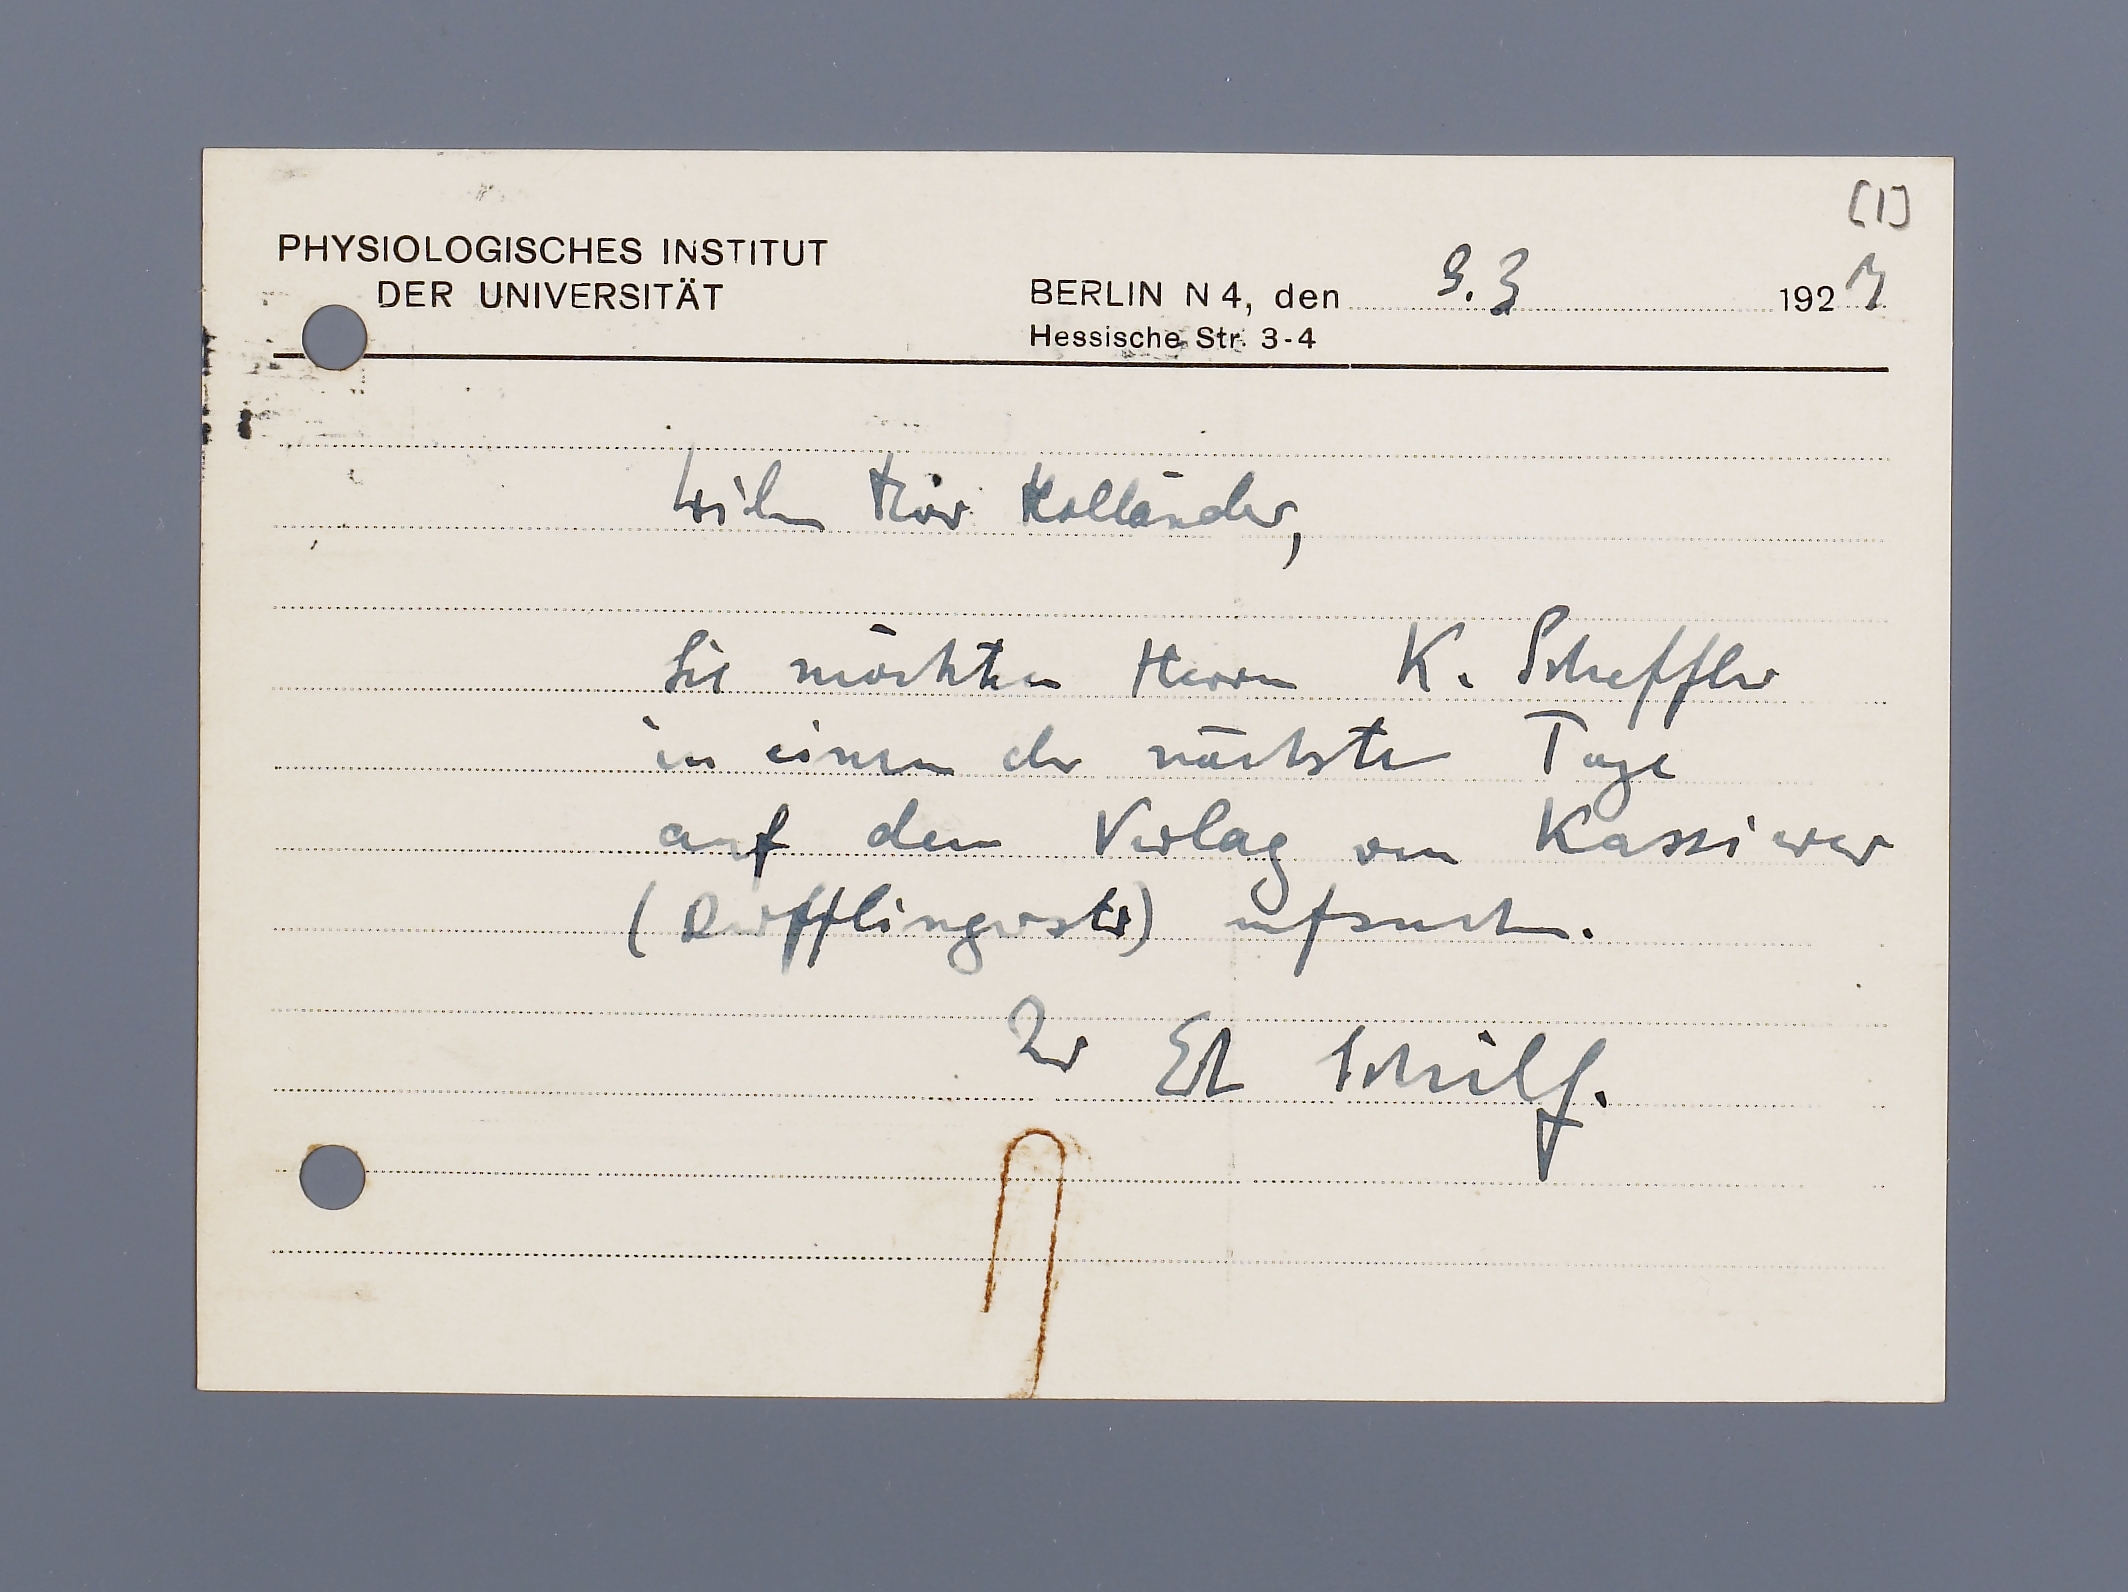 [1]
PHYSIOLOGISCHES INSTITUT
DER UNIVERSITÄT
BERLIN N 4, den 9.3 1927
Hessische Str. 3-4
Herr Holländer,
Sie möchten Herrn K. Scheffler
in einem der nächsten Tage
auf dem Verlag von Kassierer
(Derfflingerstr) aufsuchen.
Ihr Er Schilf.